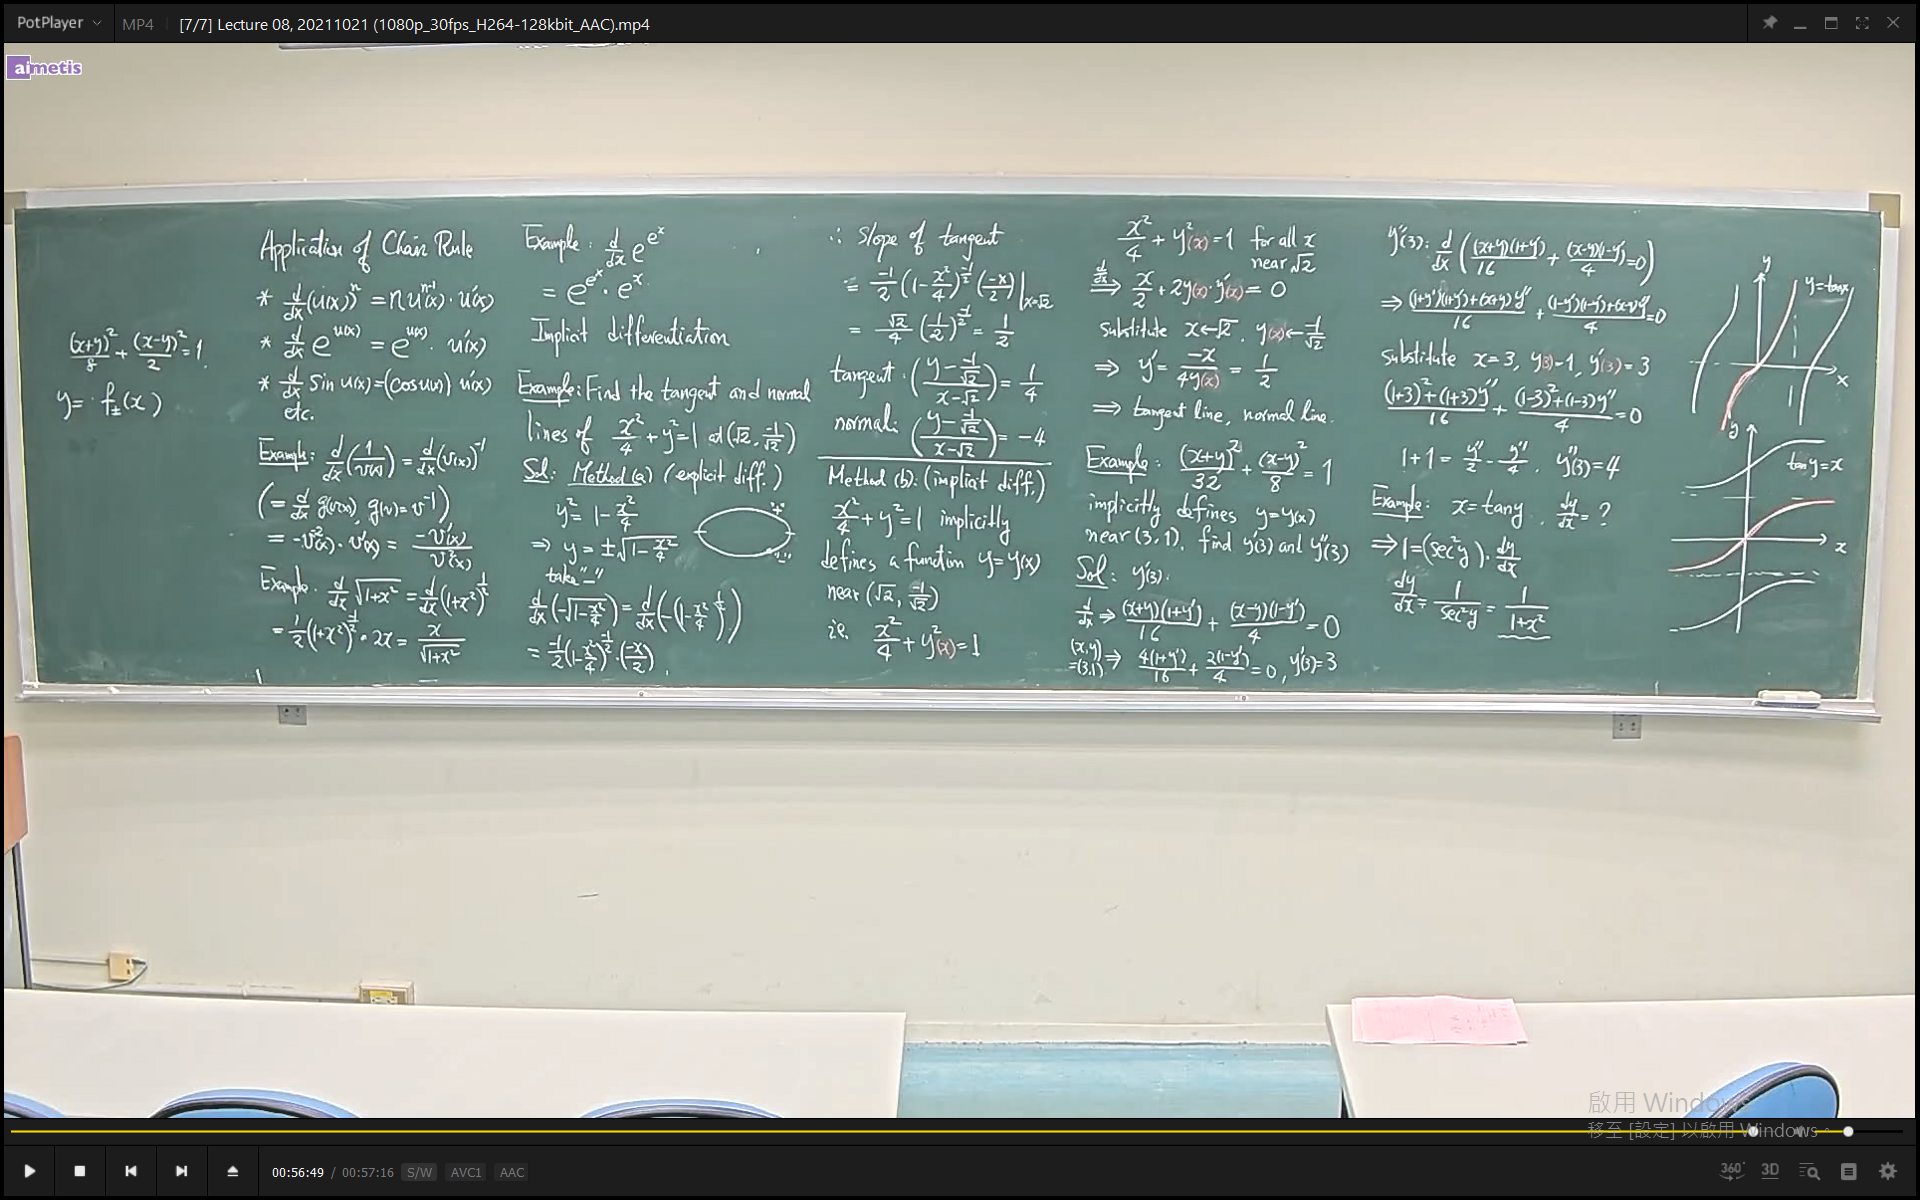 PotPlayer
MP4
[7/7] Lecture 08, 20211021 (1080p_30fps_H264-128kbit_AAC).mp4
aimetis
(x+y)²/8 + (x-y)²/2 = 1.
y = f±(x)
Application of Chain Rule
* d/dx (u(x))ⁿ = n uⁿ⁻¹(x)· u'(x)
* d/dx e^u(x) = e^u(x) · u'(x)
* d/dx Sin u(x) = (cos u(x)) u'(x)
etc.
Example: d/dx (1/v(x)) = d/dx (v(x))⁻¹
(= d/dx g(v(x)), g(v) = v⁻¹)
= -v⁻²(x) · v'(x) = -v'(x)/v²(x)
Example. d/dx √(1+x²) = d/dx (1+x²)^(1/2)
= 1/2 (1+x²)^(-1/2) · 2x = x/√(1+x²)
Example: d/dx e^e^x
= e^e^x · e^x
Implicit differentiation
Example: Find the tangent and normal
lines of x²/4 + y² = 1 at (√2, -1/√2)
Sol: Method (a) (explicit diff.)
y² = 1 - x²/4
⇒ y = ±√(1 - x²/4)
"+"
"-"
take "-"
d/dx (-√(1-x²/4)) = d/dx (-(1-x²/4)^(1/2))
= -1/2 (1-x²/4)^(-1/2) · (-x/2)
∴ Slope of tangent
= -1/2 (1-x²/4)^(-1/2) (-x/2) |x=√2
= √2/4 (1/2)^(-1/2) = 1/2
tangent: (y - -1/√2 / x-√2) = 1/4
normal: (y - -1/√2 / x-√2) = -4
Method (b): (implicit diff.)
x²/4 + y² = 1 implicitly
defines a function y = y(x)
near (√2, -1/√2)
i.e. x²/4 + y²(x) = 1
x²/4 + y²(x) = 1 for all x
near √2
d/dx ⇒ x/2 + 2y(x)·y'(x) = 0
substitute x←√2, y(x)←-1/√2
⇒ y' = -x/4y(x) = 1/2
⇒ tangent line, normal line.
Example: (x+y)²/32 + (x-y)²/8 = 1
implicitly defines y = y(x)
near (3,1). find y'(3) and y''(3)
Sol: y'(3):
d/dx ⇒ (x+y)(1+y')/16 + (x-y)(1-y')/4 = 0
(x,y)=(3,1) ⇒ 4(1+y')/16 + 2(1-y')/4 = 0, y'(3) = 3
y''(3): d/dx ((x+y)(1+y')/16 + (x-y)(1-y')/4 = 0)
⇒ (1+y')(1+y')+(x+y)y''/16 + (1-y')(1-y')+(x-y)y''/4 = 0
substitute x=3, y(3)=1, y'(3)=3
(1+3)²+(1+3)y''/16 + (1-3)²+(1-3)y''/4 = 0
1+1 = y''/2 - y''/4, y''(3) = 4
Example: x = tan y, dy/dx = ?
⇒ 1 = (sec² y)· dy/dx
dy/dx = 1/sec²y = 1/1+x²
y
y=tanx
x
y
tan y = x
x
啟用 Windows
移至 [設定] 以啟用 Windows。
00:56:49 / 00:57:16 S/W AVC1 AAC
360°
3D